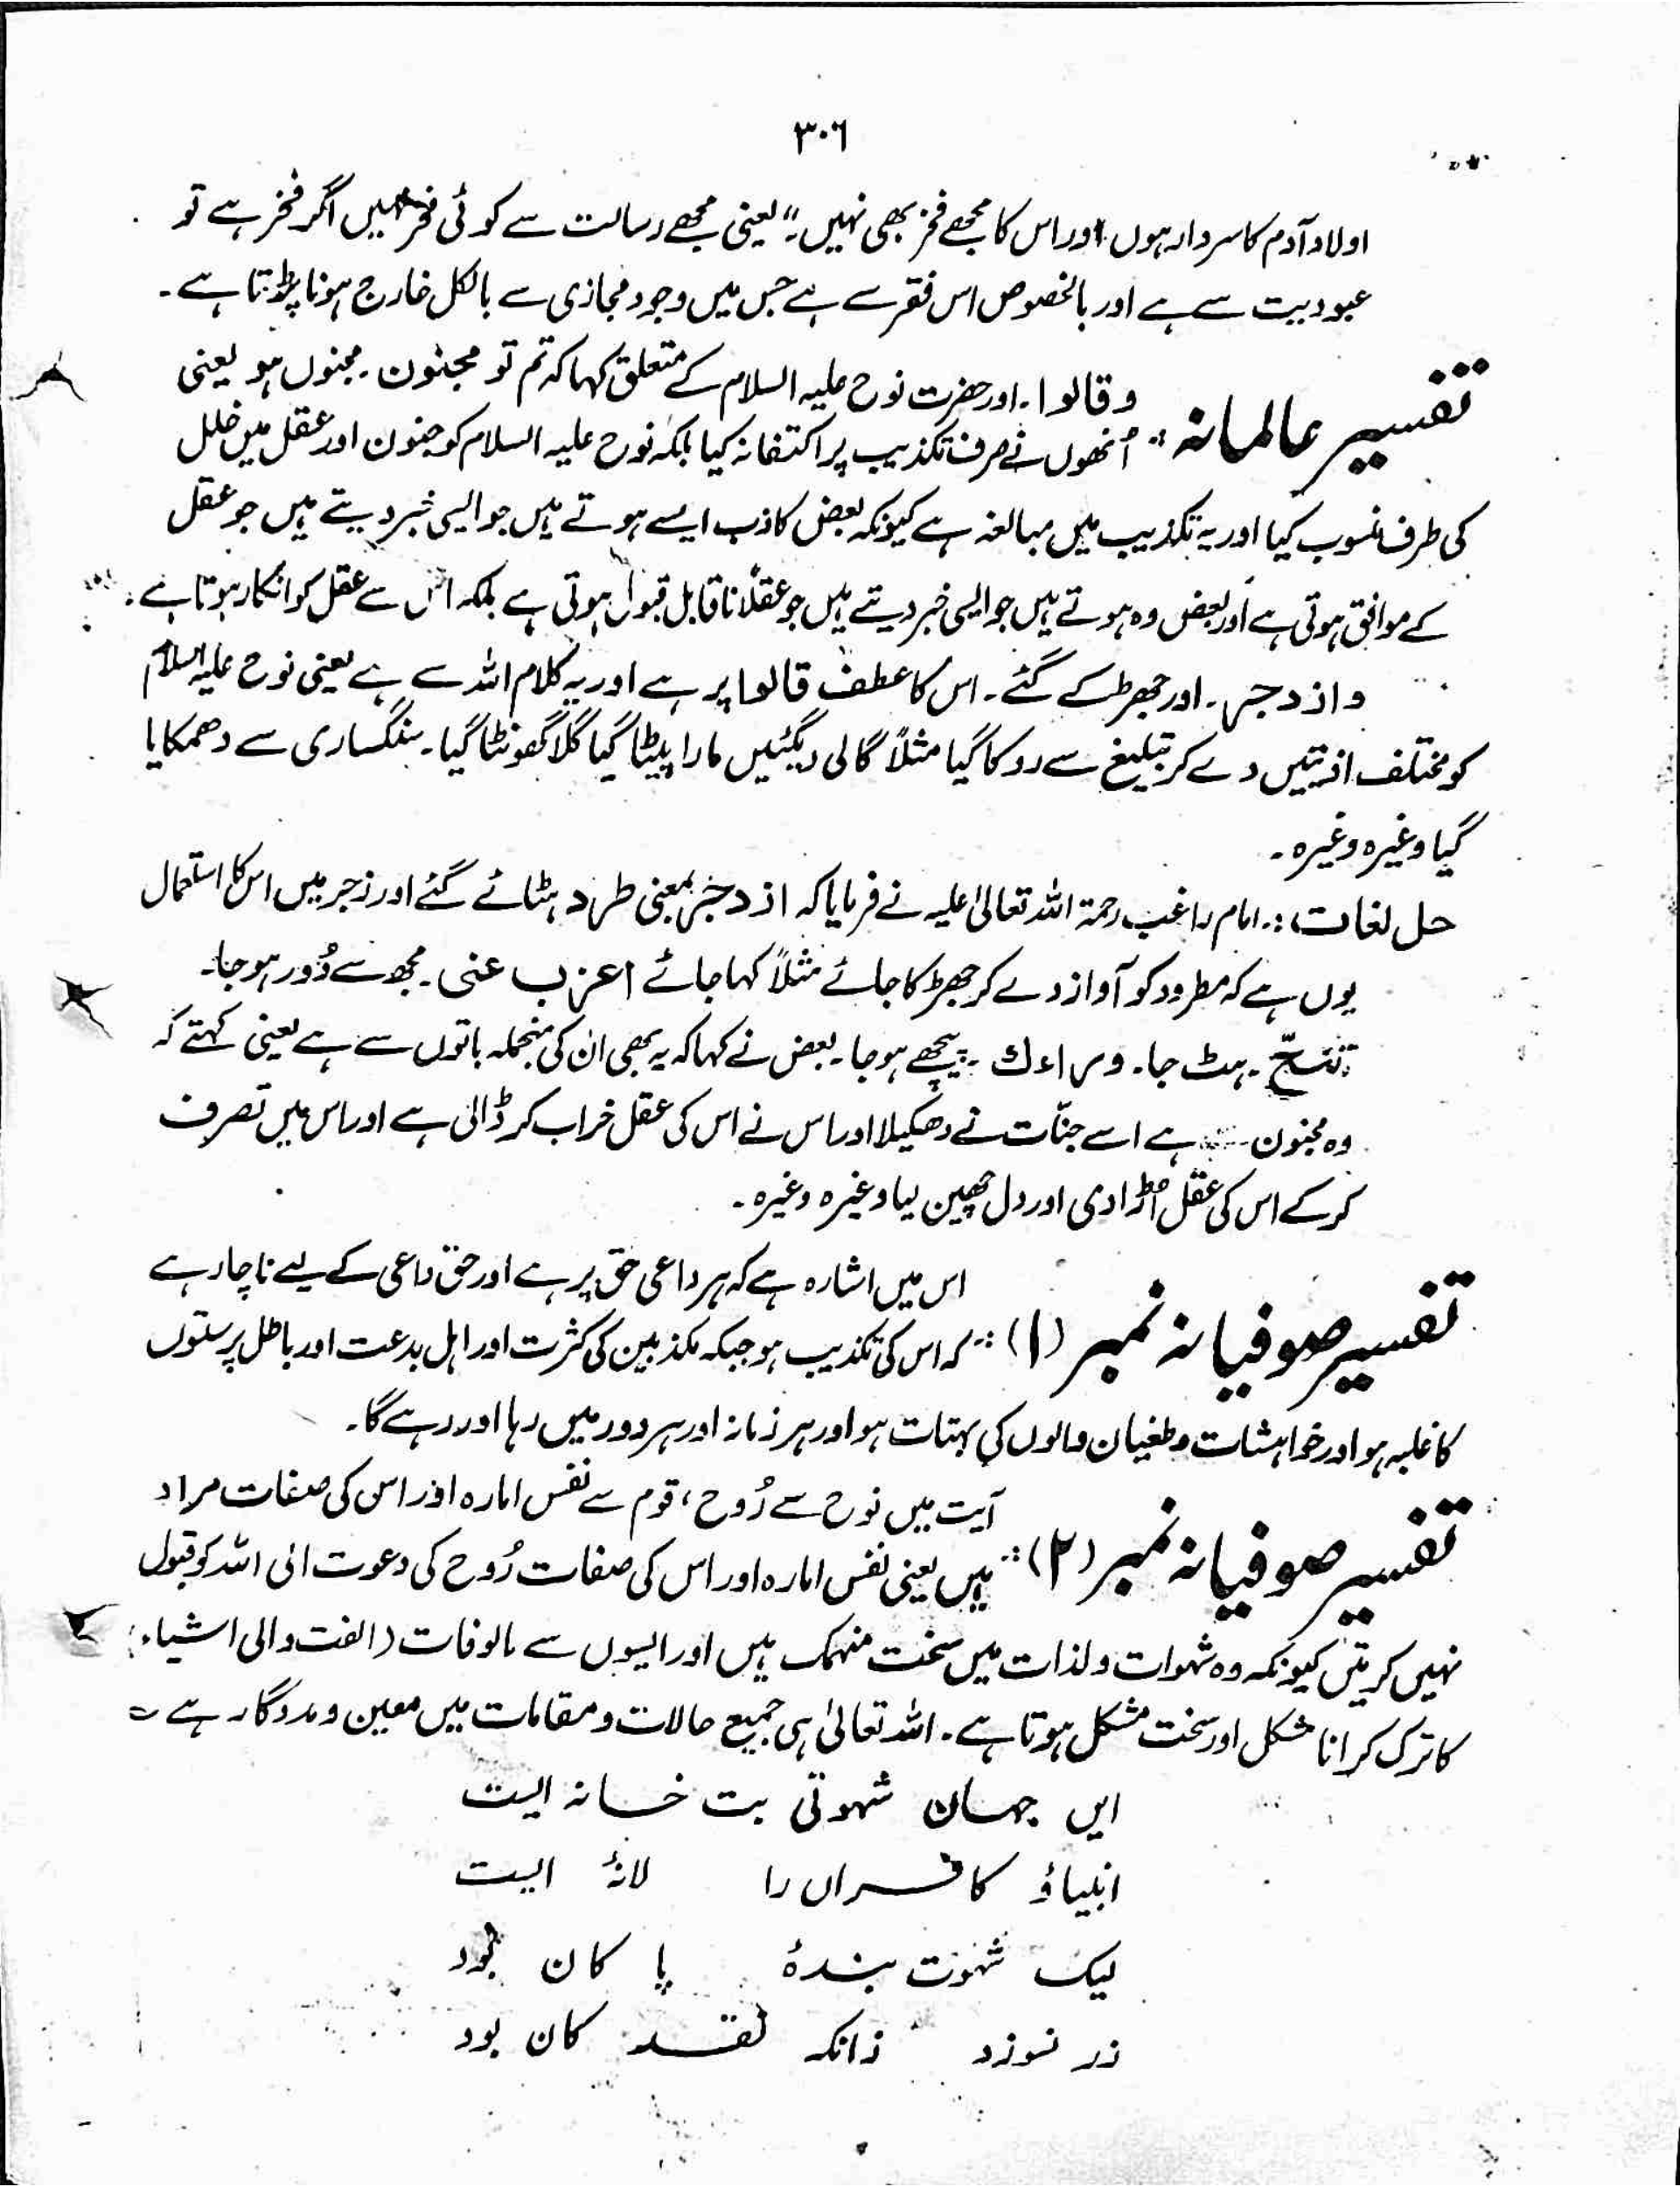 ۳۰٦
اولاد آدم کا سردار ہوں اور اس کا مجھے فخر بھی نہیں۔" یعنی مجھے رسالت سے کوئی فخر نہیں اگر فخر ہے تو
عبودیت سے ہے اور بالخصوص اس فقر سے ہے جس میں وجود مجازی سے بالکل خارج ہونا پڑتا ہے۔
تفسیر عالمانہ :۔ وقالوا۔ اور حضرت نوح علیہ السلام کے متعلق کہا کہ تم تو مجنون۔ مجنوں ہو یعنی
اُنھوں نے صرف تکذیب پر اکتفا نہ کیا بلکہ نوح علیہ السلام کو جنون اور عقل میں خلل
کی طرف منسوب کیا اور یہ تکذیب میں مبالغہ ہے کیونکہ بعض کاذب ایسے ہوتے ہیں جو ایسی خبر دیتے ہیں جو عقل
کے موافق ہوتی ہے اور بعض وہ ہوتے ہیں جو ایسی خبر دیتے ہیں جو عقلاً ناقابل قبول ہوتی ہے بلکہ اس سے عقل کو انکار ہوتا ہے۔
وازدجر۔ اور جھڑکے گئے۔ اس کا عطف قالوا پر ہے اور یہ کلام اللہ سے ہے یعنی نوح علیہ السلام
کو مختلف اذیتیں دے کر تبلیغ سے روکا گیا مثلاً گالی دیگئیں مارا پیٹا گیا گلا گھونٹا گیا۔ سنگساری سے دھمکایا
گیا وغیرہ وغیرہ۔
حل لغات :۔ امام راغب رحمۃ اللہ تعالیٰ علیہ نے فرمایا کہ ازدجر بمعنی طرد ہٹائے گئے اور زجر میں اس کا استعمال
یوں ہے کہ مطرود کو آواز دے کر جھڑکا جائے مثلاً کہا جائے اعزب عنی۔ مجھ سے دُور ہو جا۔
تنحّ۔ ہٹ جا۔ وراءك۔ پیچھے ہو جا۔ بعض نے کہا کہ یہ بھی ان کی منجملہ باتوں سے ہے یعنی کہتے کہ
وہ مجنون ہے اسے جنّات نے دھکیلا اور اس نے اس کی عقل خراب کر ڈالی ہے اور اس میں تصرف
کر کے اس کی عقل اُڑا دی اور دل چھین لیا وغیرہ وغیرہ۔
تفسیر صوفیانہ نمبر (۱) :۔ اس میں اشارہ ہے کہ ہر داعی حق پر ہے اور حق داعی کے لیے ناچار ہے
کہ اس کی تکذیب ہو جبکہ مکذبین کی کثرت اور اہل بدعت اور باطل پرستوں
کا غلبہ ہو اور خواہشات و طغیان والوں کی بہتات ہو اور ہر زمانہ اور ہر دور میں رہا اور رہے گا۔
تفسیر صوفیانہ نمبر (۲) :۔ آیت میں نوح سے رُوح، قوم سے نفس امارہ اور اس کی صفات مراد
ہیں یعنی نفس امارہ اور اس کی صفات رُوح کی دعوت الی اللہ کو قبول
نہیں کریتں کیونکہ وہ شہوات و لذات میں سخت منہمک ہیں اور ایسوں سے مالوفات (الفت والی اشیاء)
کا ترک کرانا مشکل اور سخت مشکل ہوتا ہے۔ اللہ تعالیٰ ہی جمیع حالات و مقامات میں معین و مددگار ہے ؎
ایں جہان شہوتی بت خانہ ایست
انبیاؤ کافراں را لانۂ ایست
لیک شہوت بندۂ پاکان بود
زر نسوزد زانکہ نقد کان بود